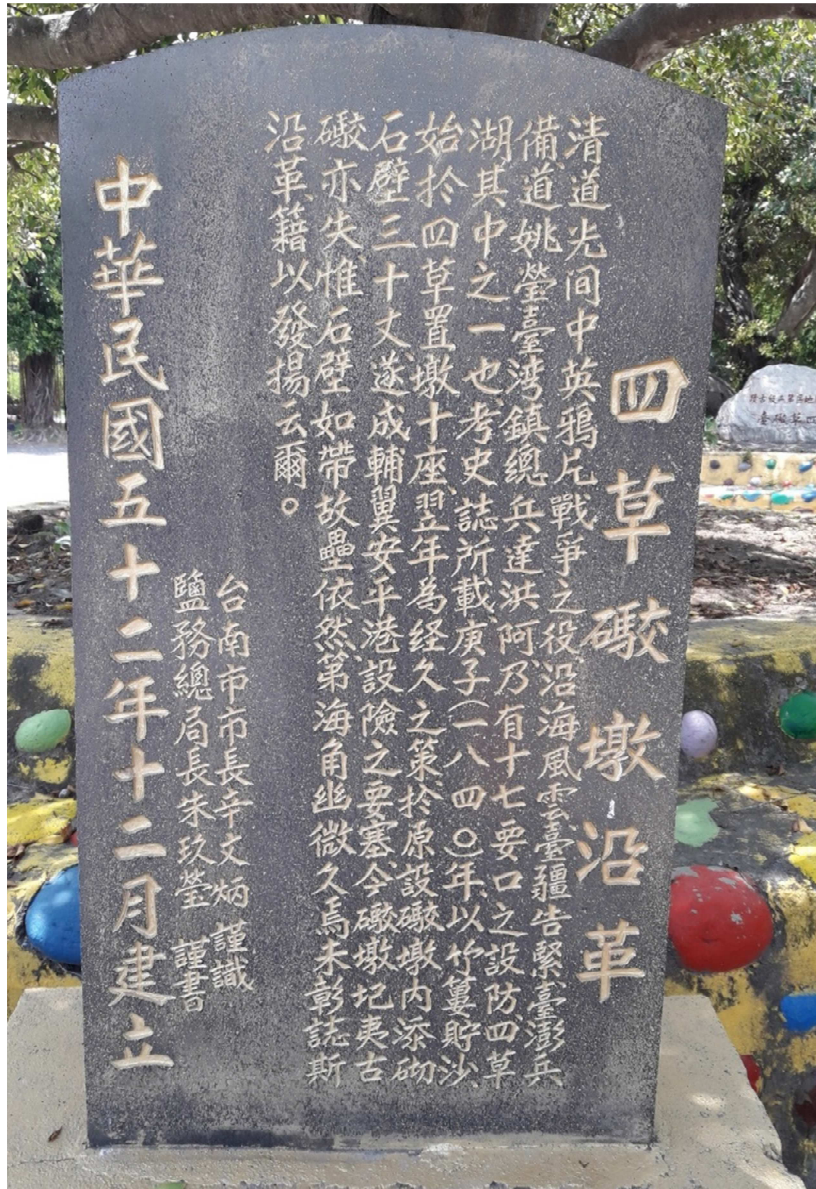 四草礮墩沿革
清道光间中英鴉片戰爭之役、沿海風雲、臺疆告緊、臺澎兵
備道姚瑩、臺灣鎮總兵達洪阿、乃有十七要口之設防、四草
湖其中之一也、考史誌所載、庚子(一八四〇)年、以竹簍貯沙、
始於四草置墩十座、翌年為经久之策、於原設礮墩內添砌
石壁三十丈、遂成輔翼安平港設險之要塞、今礮墩圮夷、古
礮亦失、惟石壁如帶、故壘依然、第海角幽微、久焉未彰、誌斯
沿革、籍以發揚云爾。
台南市市長辛文炳 謹識
鹽務總局長朱玖瑩 謹書
中華民國五十二年十二月建立
臺礮草四